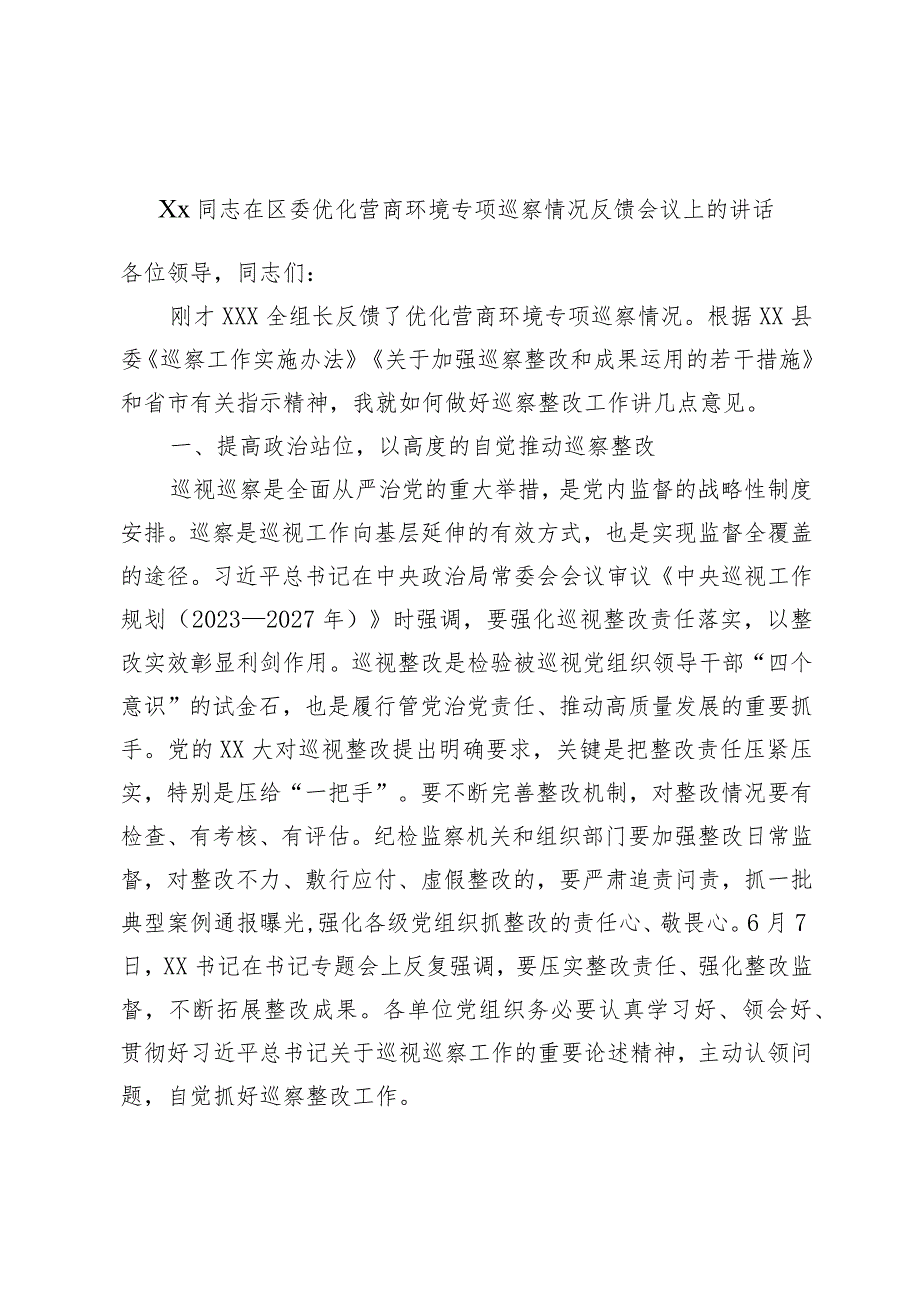 Xx同志在区委优化营商环境专项巡察情况反馈会议上的讲话
各位领导，同志们：
刚才XXX全组长反馈了优化营商环境专项巡察情况。根据XX县
委《巡察工作实施办法》《关于加强巡察整改和成果运用的若干措施》
和省市有关指示精神，我就如何做好巡察整改工作讲几点意见。
一、提高政治站位，以高度的自觉推动巡察整改
巡视巡察是全面从严治党的重大举措，是党内监督的战略性制度
安排。巡察是巡视工作向基层延伸的有效方式，也是实现监督全覆盖
的途径。习近平总书记在中央政治局常委会会议审议《中央巡视工作
规划（2023—2027年）》时强调，要强化巡视整改责任落实，以整
改实效彰显利剑作用。巡视整改是检验被巡视党组织领导干部“四个
意识”的试金石，也是履行管党治党责任、推动高质量发展的重要抓
手。党的XX大对巡视整改提出明确要求，关键是把整改责任压紧压
实，特别是压给“一把手”。要不断完善整改机制，对整改情况要有
检查、有考核、有评估。纪检监察机关和组织部门要加强整改日常监
督，对整改不力、敷行应付、虚假整改的，要严肃追责问责，抓一批
典型案例通报曝光,强化各级党组织抓整改的责任心、敬畏心。6月7
日，XX书记在书记专题会上反复强调，要压实整改责任、强化整改监
督，不断拓展整改成果。各单位党组织务必要认真学习好、领会好、
贯彻好习近平总书记关于巡视巡察工作的重要论述精神，主动认领问
题，自觉抓好巡察整改工作。